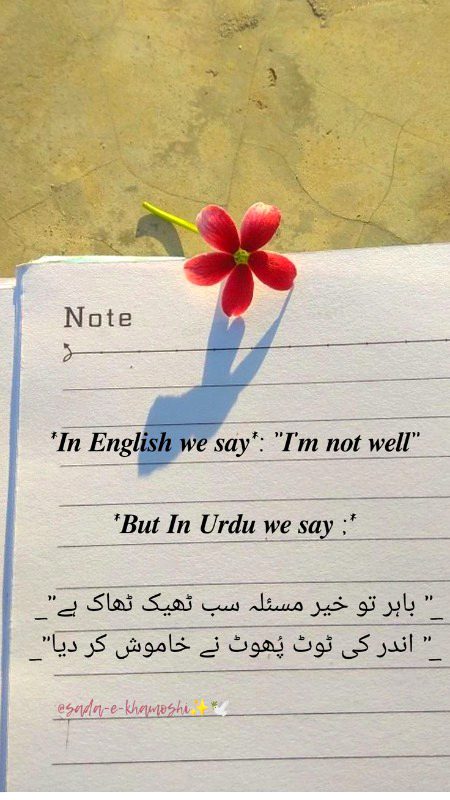 Note
*In English we say*: "I'm not well"
*But In Urdu we say ;*
_" باہر تو خیر مسئلہ سب ٹھیک ٹھاک ہے"_
_" اندر کی ٹوٹ پُھوٹ نے خاموش کر دیا"_
@sada-e-khamoshi✨🕊️